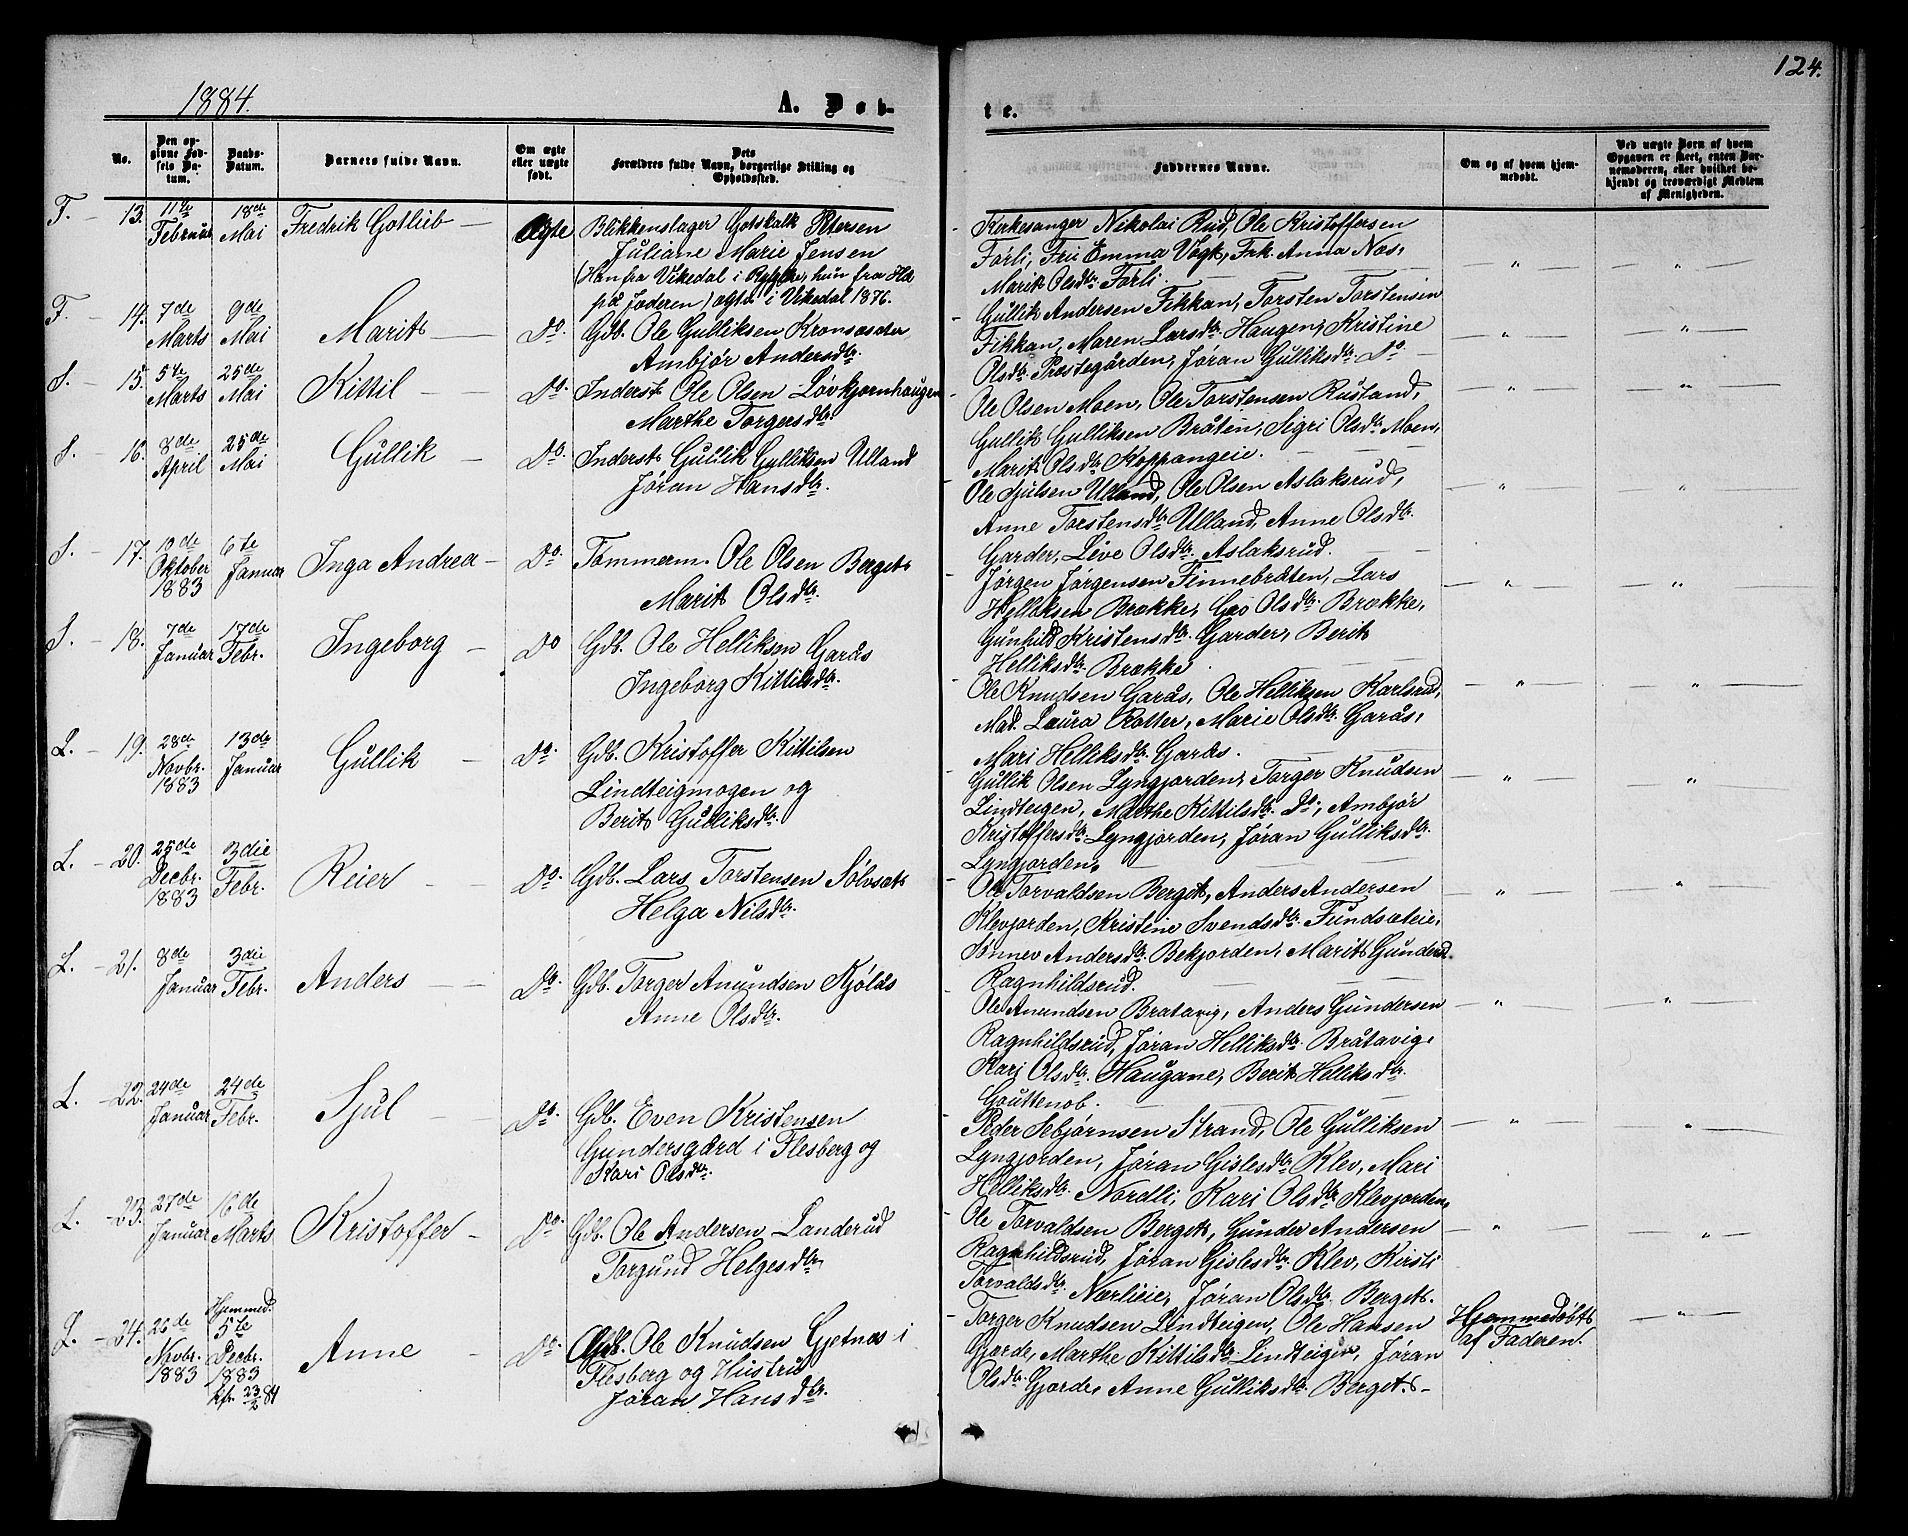 124.
1884.
A. Døb-
te.
No.
Den opgivne Fødsels Datum.
Daabs-Datum.
Barnets fulde Navn.
Om ægte eller uægte født.
Dets Forældres fulde Navn, borgerlige Stilling og Opholdssted.
Faddernes Navne.
Om og af hvem hjemmedøbt.
Ved uægte Børn af hvem Opgaven er skeet, enten Barnemoderen, eller hvilket bekjendt og troværdigt Medlem af Menigheden.
F. - 13. 11te Februar 18de Mai Fredrik Gotlieb - Ægte Blikkenslager Gotskalk Petersen
Juliane Marie Jensen
(Han fra Vikedal i Ryfylke, hun fra Hå
på Jæderen) ægtev. i Vikedal 1876.
- Kirkesanger Nikolai Rud, Ole Kristoffersen
Førli, Fru Emma Vogt, Frk. Anna Næs,
Marit Olsdtr. Førli. — " — — " —
F. - 14. 7de Marts 9de Mai Marit - Do. Gdb. Ole Gulliksen Kronsæder
Ambjør Andersdtr.
- Gullik Andersen Fikkan, Torsten Torstensen
Fikkan, Maren Larsdtr. Haugen, Kristine
Olsdtr. Præstegården, Jøran Gulliksdtr. Do — " — — " —
S. - 15. 5te Marts 25de Mai Kittil - Do. Inderst Ole Olsen Løvkjernhaugen
Marthe Torgersdtr.
- Ole Olsen Moen, Ole Torstensen Rustand,
Gullik Gulliksen Bråten, Sigri Olsdtr. Moen,
Marit Olsdtr. Koppangeie. — " — — " —
S. - 16. 8de April 25de Mai Gullik - Do. Inderst Gullik Gulliksen Ulland
Jøran Hansdtr.
- Ole Sjulsen Ulland, Ole Olsen Aslaksrud,
Anne Torstensdtr. Ulland, Anne Olsdtr.
Garder, Live Olsdtr. Aslaksrud. — " — — " —
S. - 17. 10de Oktober 1883 6te Januar Inga Andrea - Do. Tømmerm. Ole Olsen Berget
Marit Olsdtr.
- Jørgen Jørgensen Finnebråten, Lars
Helliksen Brække, Gro Olsdtr. Brække,
Gunhild Kristensdtr. Garder, Berit
Helliksdtr. Brække. — " — — " —
S. - 18. 7de Januar 17de Febr. Ingeborg - Do Gdb. Ole Helliksen Garås
Ingeborg Kittilsdtr.
- Ole Knudsen Garås, Ole Helliksen Karlsrud,
Mad. Laura Rotter, Marie Olsdtr. Garås,
Mari Helliksdtr. Garås. — " — — " —
L. - 19. 28de Novbr. 1883 13de Januar Gullik - Do. Gdb. Kristoffer Kittilsen
Lindteigmogen og
Berit Gulliksdtr.
- Gullik Olsen Lyngjorden, Torger Knudsen
Lindteigen, Marthe Kittilsdtr. Do, Ambjør
Kristoffersdtr. Lyngjorden, Jøran Gulliksdtr.
Lyngjorden. — " — — " —
L. - 20. 25de Decbr. 1883 3die Febr. Reier - Do. Gdb. Lars Torstensen Sølvsat
Helga Nilsdtr.
- Ole Torvaldsen Berget, Anders Andersen
Klevjorden, Kristine Svendsdtr. Fundsæteie,
Sønnev Andersdtr. Bekjorden, Marit Gundersd.
Ragnhildsrud. — " — — " —
L. - 21. 8de Januar 3die Febr. Anders - Do. Gdb. Torger Amundsen Kjølås
Anne Olsdtr.
- Ole Amundsen Bratavig, Anders Gundersen
Ragnhildsrud, Jøran Helliksdtr. Bråtavig,
Kari Olsdtr. Haugane, Berit Helliksdtr.
— " — — " —
L. - 22. 24de Januar 24de Febr. Sjul - Do. Gdb. Even Kristensen
Gundersgærd i Flesberg og
Kari Olsdtr.
- Peder Sebjørnsen Strand, Ole Gulliksen
Lyngjorden, Jøran Gislesdtr. Klev, Mari
Helliksdtr. Nordli, Kari Olsdtr. Klevjorden. — " — — " —
L. - 23. 27de Januar 16de Marts Kristoffer - Do. Gdb. Ole Andersen Landerud
Torgund Helgesdtr.
- Ole Torvaldsen Berget, Gunder Andersen
Ragnhildsrud, Jøran Gislesdtr. Klev, Kirsti
Torvaldsdtr. Nærlieie, Jøran Olsdtr. Berget. — " — — " —
L. - 24. 26de Novbr. 1883 Hjemmed. 5te Decbr. 1883 kfr. 23/2 84 Anne - Do. Gdb. Ole Knudsen Gjetnæs i
Flesberg og Hustru
Jøran Hansdtr.
- Torger Knudsen Lindteigen, Ole Hansen
Gjorde, Marthe Kittilsdtr. Lindteigen, Jøran
Olsdtr. Gjorde, Anne Gulliksdtr. Berget. -
Hjemmedøbt
af Faderen. — " —